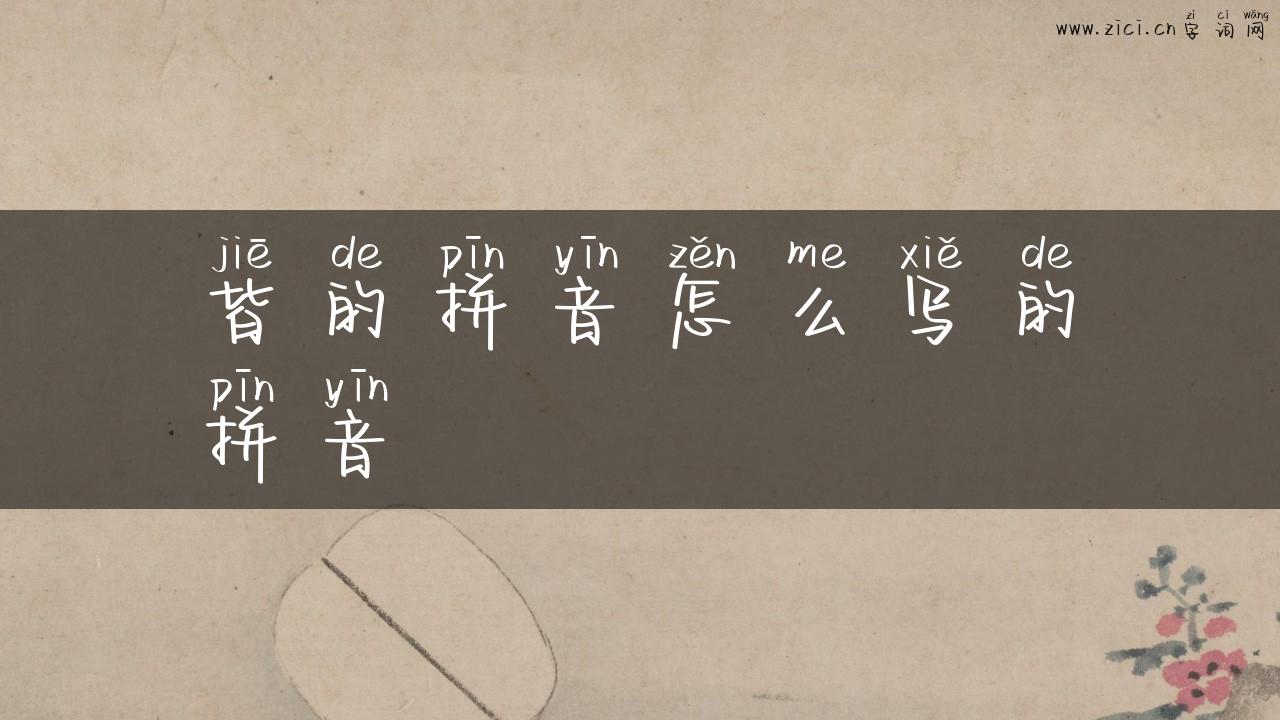 zì cí wǎng
www.zici.cn 字 词 网
jiē de pīn yīn zěn me xiě de
皆 的 拼 音 怎 么 写 的
pīn yīn
拼 音